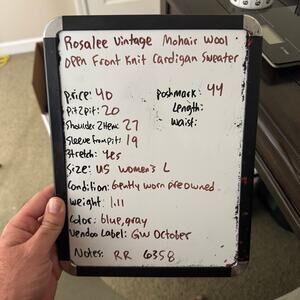 Rosalee Vintage Mohair Wool
Open Front Knit Cardigan Sweater
price: 40
Poshmark: 44
Pit2pit: 20
Length:
Shoulder2Hem: 27
Waist:
Sleeve from pit: 19
Stretch: yes
Size: US women's L
Condition: Gently worn preowned
Weight: 1.11
Color: blue, gray
Vendoo Label: GW October
Notes: RR 6358